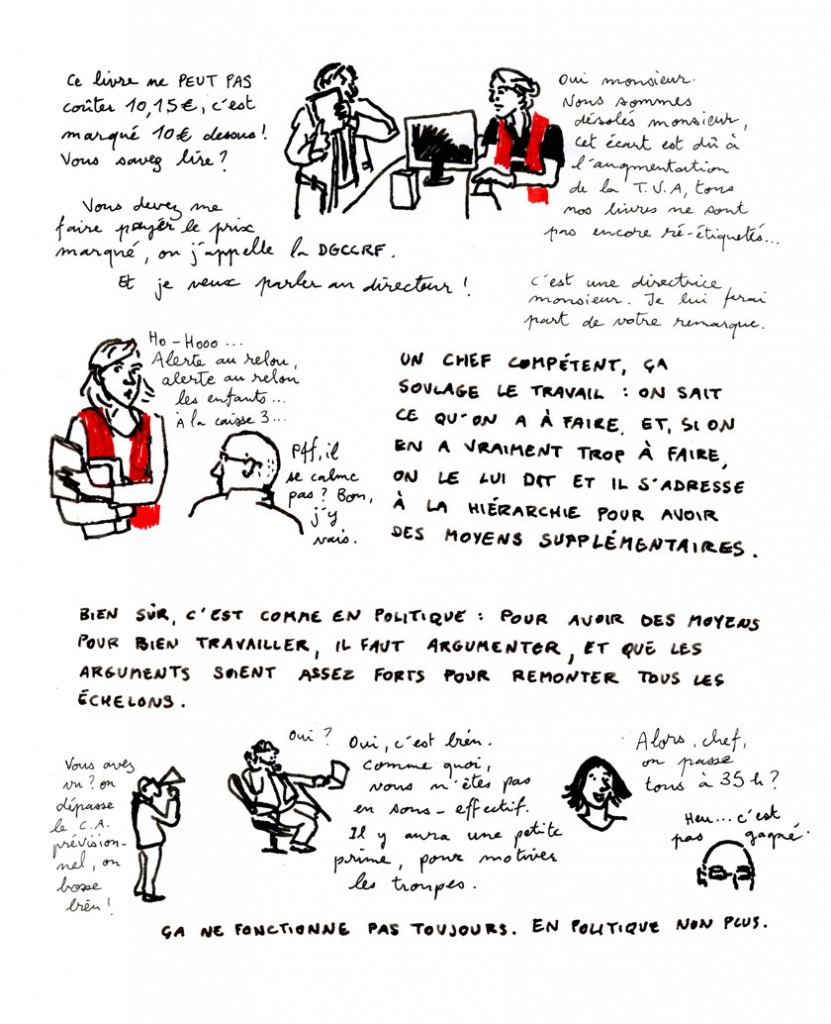 Ce livre ne PEUT PAS
coûter 10,15€, c'est
marqué 10€ dessus!
Vous savez lire?
Vous devez me
faire payer le prix
marqué, ou j'appelle la DGCCRF.
Et je veux parler au directeur!
Oui monsieur.
Nous sommes
désolés monsieur,
cet écart est dû à
l'augmentation
de la T.V.A, tous
nos livres ne sont
pas encore ré-étiquetés...
C'est une directrice,
monsieur. Je lui ferai
part de votre remarque.
Ho-Hooo...
Alerte au relou,
alerte au relou
les enfants...
à la caisse 3...
Pff, il
se calme
pas? Bon,
j'y
vais.
UN CHEF COMPÉTENT, ÇA
SOULAGE LE TRAVAIL : ON SAIT
CE QU'ON A À FAIRE, ET, SI ON
EN A VRAIMENT TROP À FAIRE,
ON LE LUI DIT ET IL S'ADRESSE
À LA HIÉRARCHIE POUR AVOIR
DES MOYENS SUPPLÉMENTAIRES.
BIEN SÛR, C'EST COMME EN POLITIQUE : POUR AVOIR DES MOYENS
POUR BIEN TRAVAILLER, IL FAUT ARGUMENTER, ET QUE LES
ARGUMENTS SOIENT ASSEZ FORTS POUR REMONTER TOUS LES
ÉCHELONS.
Vous avez
vu? on
dépasse
le C.A.
prévision-
nel, on
bosse
bien!
Oui?
Oui, c'est bien.
Comme quoi,
vous n'êtes pas
en sous-effectif.
Il y aura une petite
prime, pour motiver
les troupes.
Alors, chef,
on passe
tous à 35h?
Heu... c'est
pas gagné.
ÇA NE FONCTIONNE PAS TOUJOURS. EN POLITIQUE NON PLUS.